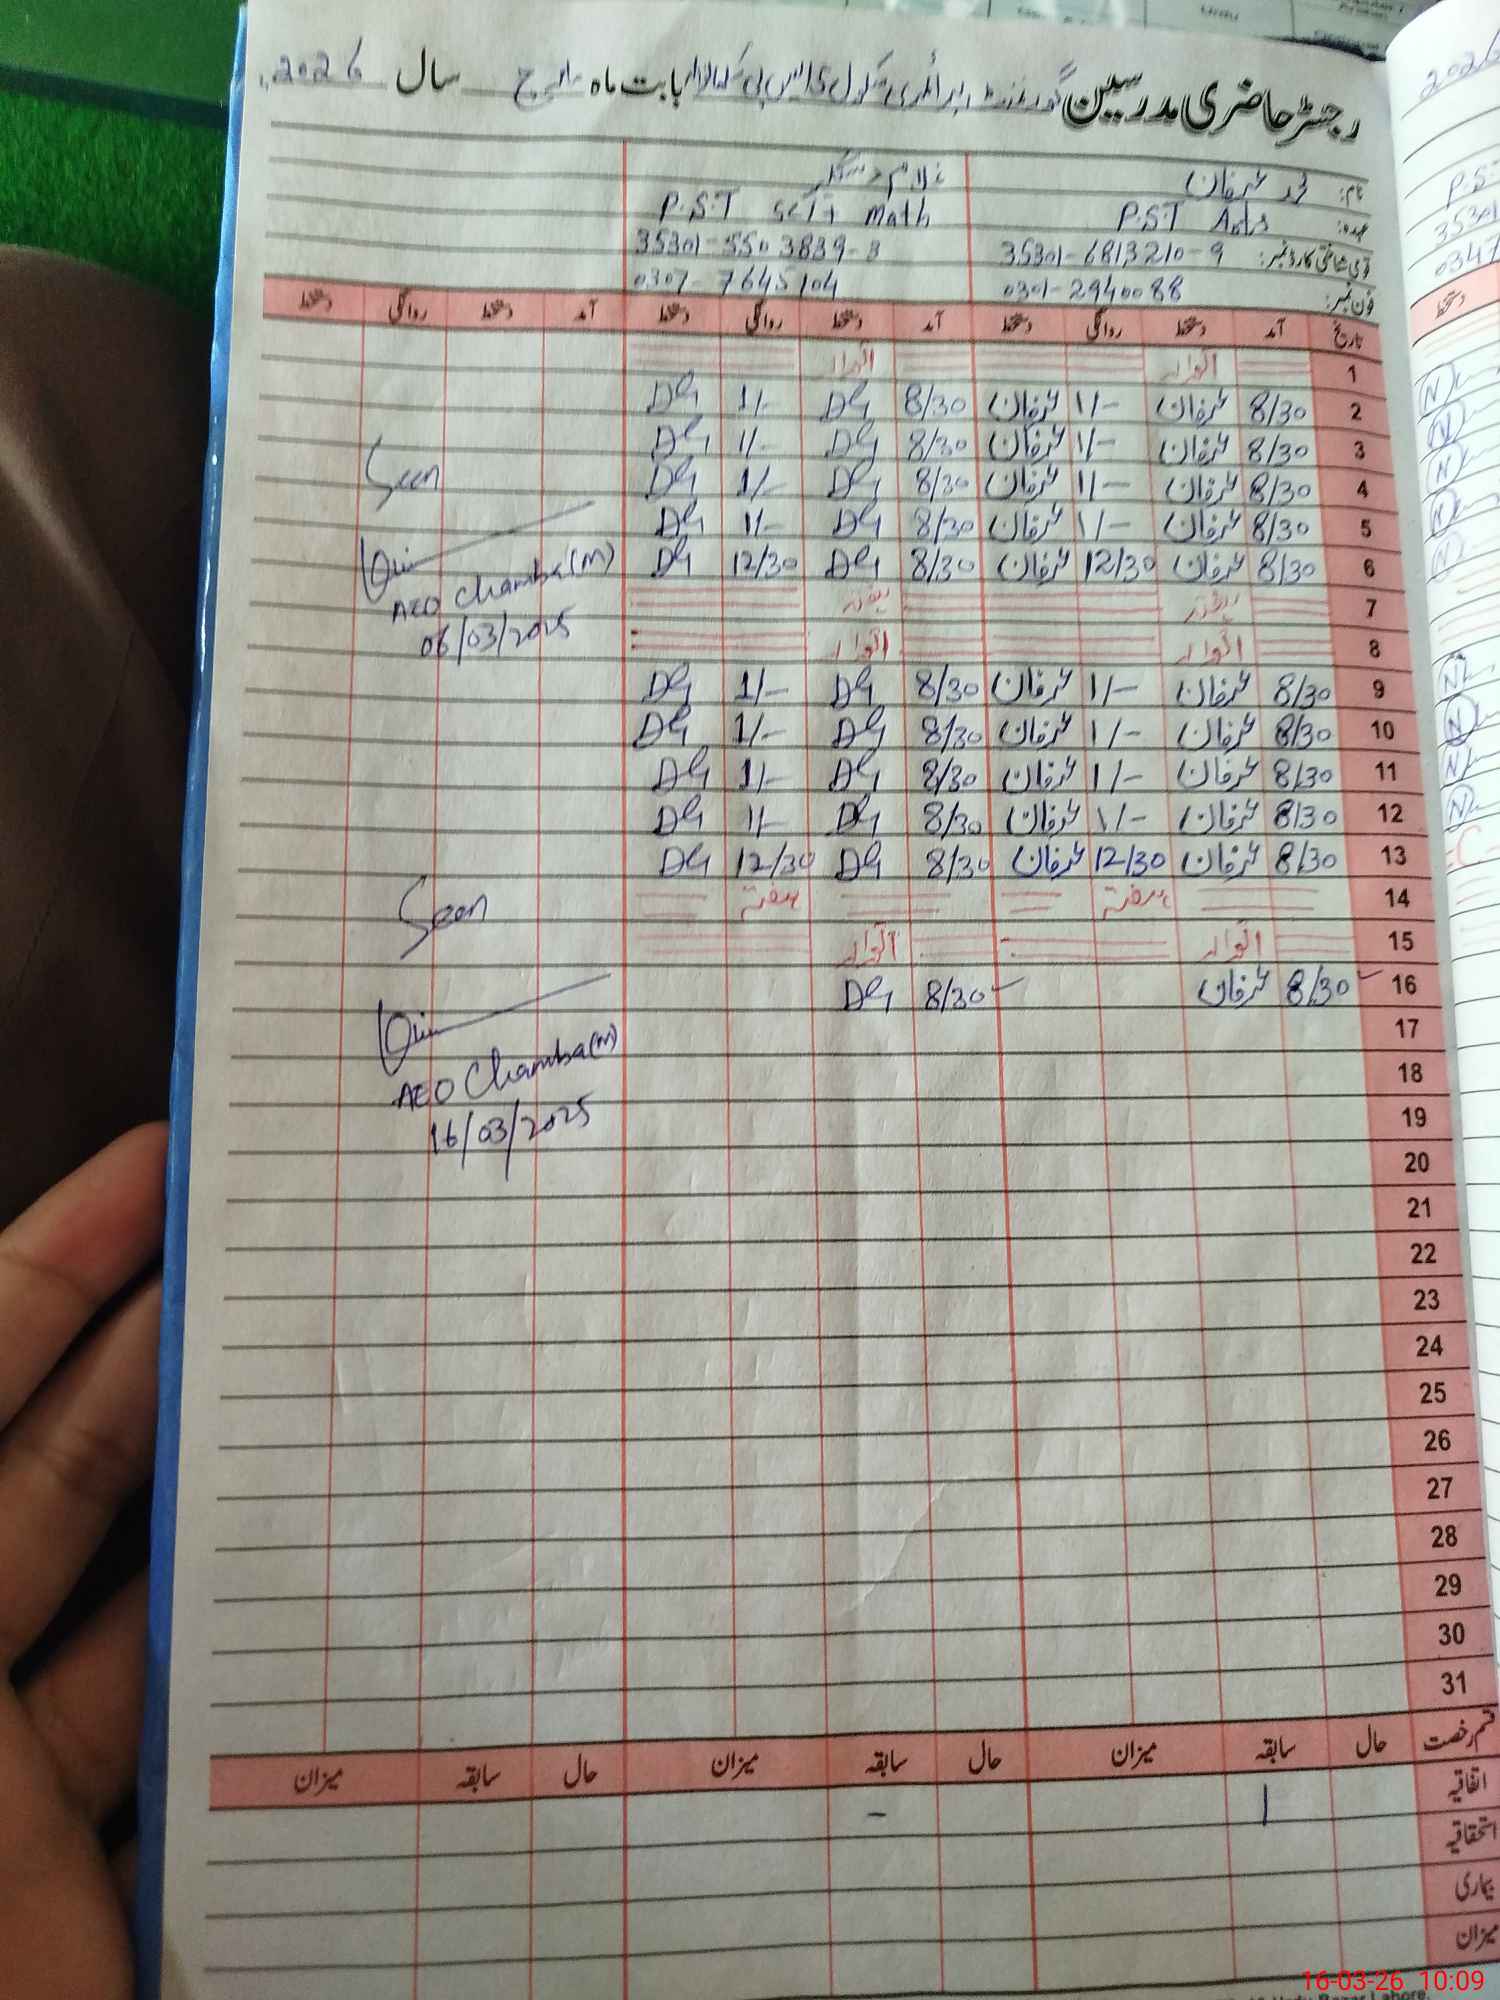 رجسٹر حاضری مدرسین گورنمنٹ پرائمری سکول بابت ماہ مارچ سال 2026
نام: محمد عرفان غلام دستگیر
عہدہ: P.S.T Arts P.S.T Sci + Math
قومی شناختی کارڈ نمبر: 35301-6813210-9 35301-5503839-3
فون نمبر: 0301-2940088 0307-7645104
تاریخ آمد دستخط روانگی دستخط آمد دستخط روانگی دستخط آمد دستخط روانگی دستخط
1 اتوار اتوار
2 8/30 عرفان 1/- عرفان 8/30 DG 1/- DG
3 8/30 عرفان 1/- عرفان 8/30 DG 1/- DG
4 8/30 عرفان 1/- عرفان 8/30 DG 1/- DG
5 8/30 عرفان 1/- عرفان 8/30 DG 1/- DG
6 8/30 عرفان 12/30 عرفان 8/30 DG 12/30 DG
Seen
AEO Chamba(M)
06/03/2025
7 ہفتہ ہفتہ
8 اتوار اتوار
9 8/30 عرفان 1/- عرفان 8/30 DG 1/- DG
10 8/30 عرفان 1/- عرفان 8/30 DG 1/- DG
11 8/30 عرفان 1/- عرفان 8/30 DG 1/- DG
12 8/30 عرفان 1/- عرفان 8/30 DG 1/- DG
13 8/30 عرفان 12/30 عرفان 8/30 DG 12/30 DG
14 ہفتہ ہفتہ
15 اتوار اتوار
16 8/30 عرفان 8/30 DG
Seen
AEO Chamba(M)
16/03/2025
17
18
19
20
21
22
23
24
25
26
27
28
29
30
31
قسم رخصت حال سابقہ میزان حال سابقہ میزان حال سابقہ میزان
اتفاقیہ 1 -
استحقاقیہ
بیماری
میزان
16-03-26 10:09
2026
P.S
35301
0347
دستخط